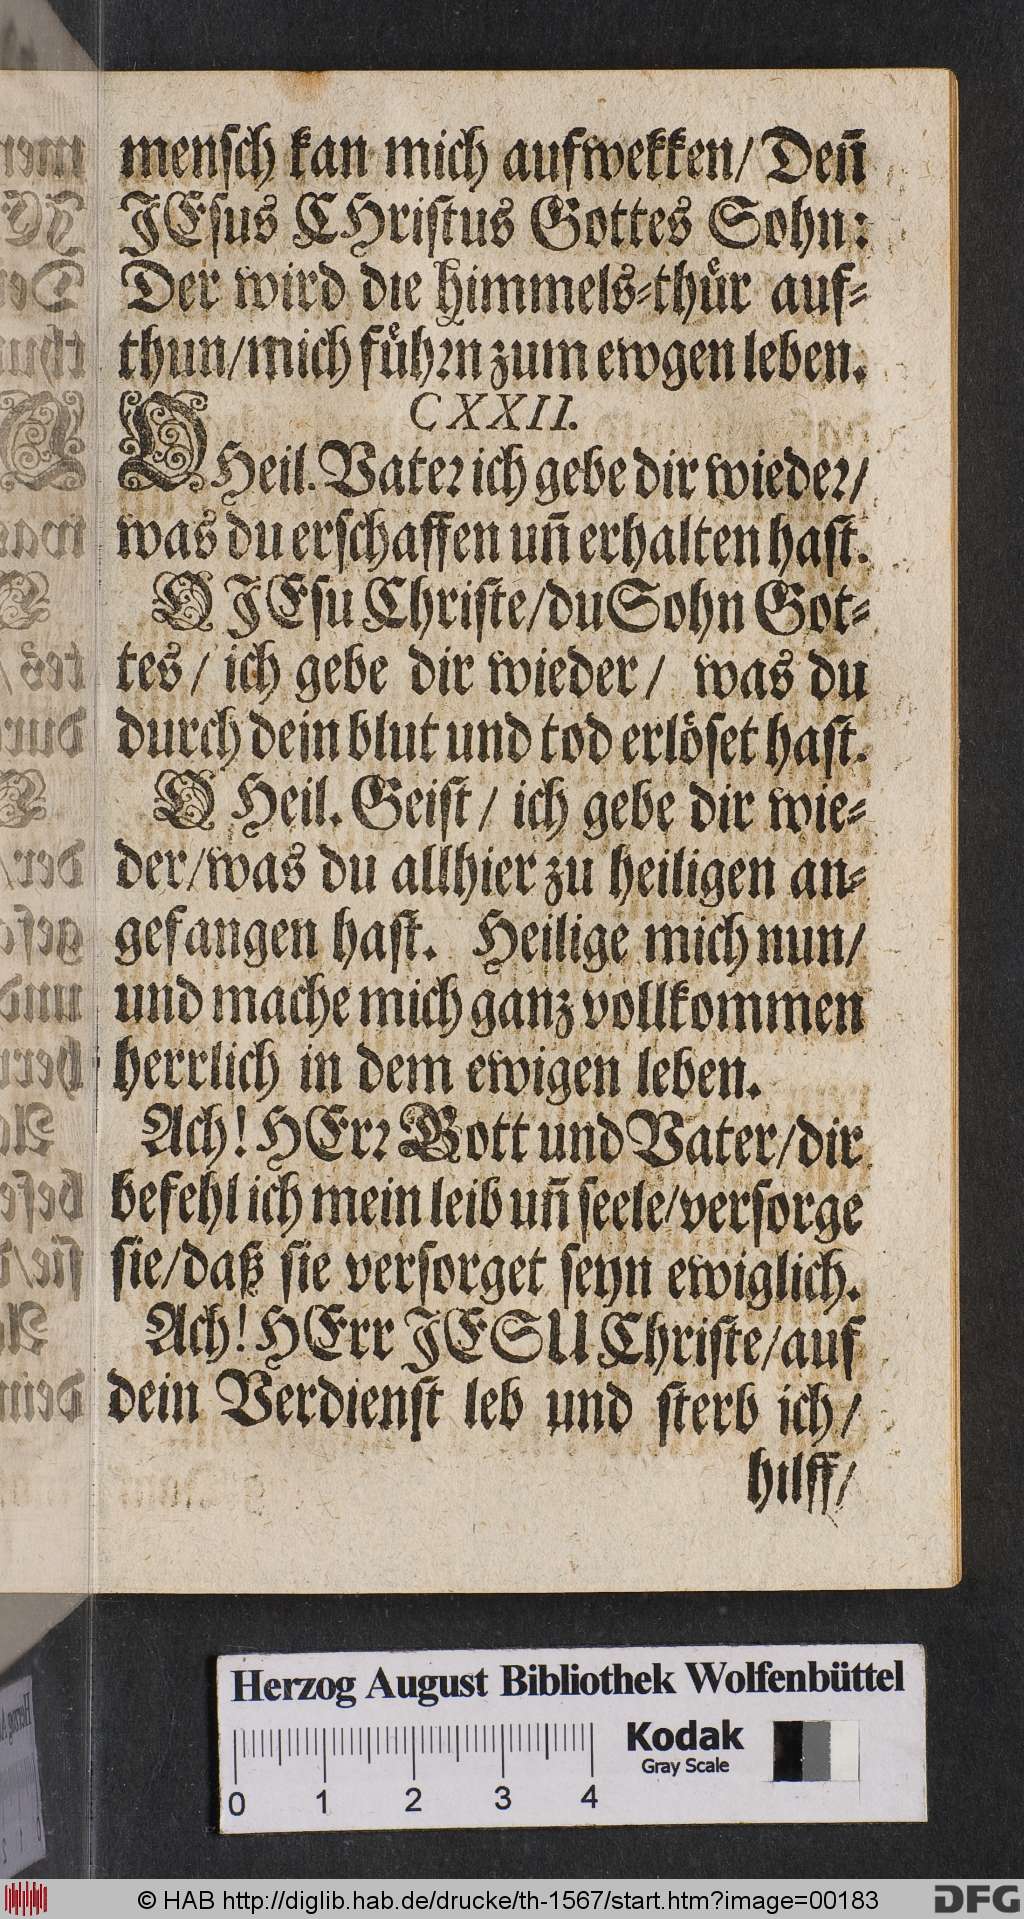 mensch kan mich aufwekken/ Deñ
JEsus CHristus Gottes Sohn:
Der wird die himmels-thuͤr auf-
thun/mich fuͤhrn zum ewgen leben.
CXXII.
O Heil. Vater ich gebe dir wieder/
was du erschaffen uñ erhalten hast.
O JEsu Christe/du Sohn Got-
tes/ ich gebe dir wieder/ was du
durch dein blut und tod erlöset hast.
O Heil. Geist/ ich gebe dir wie-
der/was du allhier zu heiligen an-
gefangen hast. Heilige mich nun/
und mache mich ganz vollkommen
herrlich in dem ewigen leben.
Ach! HErr Gott und Vater/dir
befehl ich mein leib uñ seele/versorge
sie/daß sie versorget seyn ewiglich.
Ach! HErr JESU Christe/auf
dein Verdienst leb und sterb ich/
hilff/
Herzog August Bibliothek Wolfenbüttel
Kodak
Gray Scale
0 1 2 3 4
© HAB http://diglib.hab.de/drucke/th-1567/start.htm?image=00183
DFG